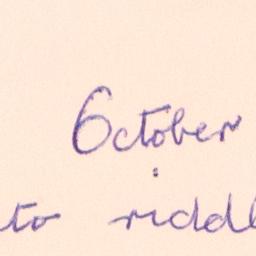 October
to riddl